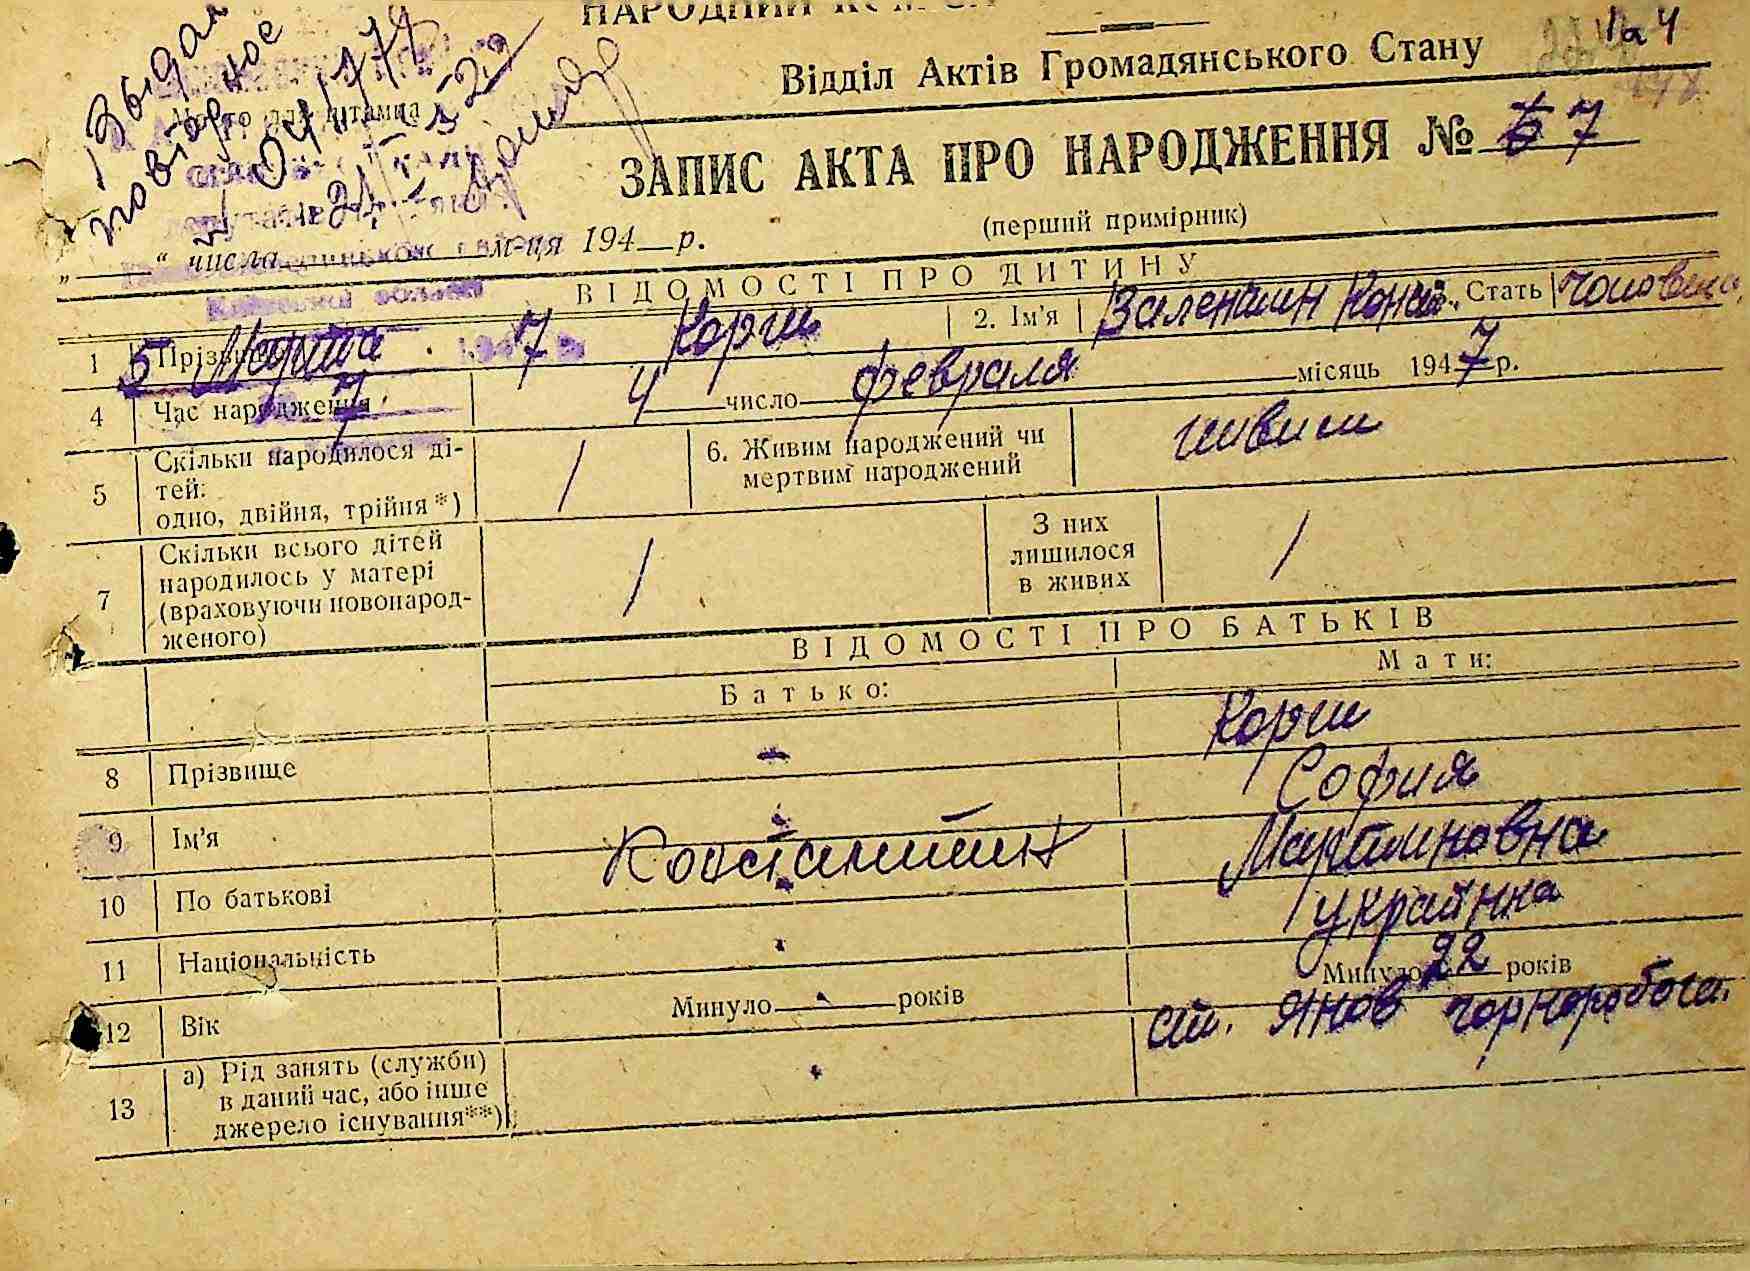 Відділ Актів Громадянського Стану
На 4
Видал
повторное
Место для штампа
21/V-52
ЗАПИС АКТА ПРО НАРОДЖЕННЯ № 7
(перший примірник)
„ “ числа м-ця 194 р.
ВІДОМОСТІ ПРО ДИТИНУ
5 Марта 7
1 Прізвище Корш 2. Ім'я Валентин Конст. Стать Чоловіча
4 Час народження 4 число февраля місяць 1947 р.
5 Скільки народилося ді-
тей:
одно, двійня, трійня*) 1
6. Живим народжений чи
мертвим народжений живим
7 Скільки всього дітей
народилось у матері
(враховуючи новонарод-
женого) 1
З них
лишилося
в живих 1
ВІДОМОСТІ ПРО БАТЬКІВ
Батько: Мати:
8 Прізвище - Корш
9 Ім'я Константин София
10 По батькові - Мартиновна
11 Національність - українка
12 Вік Минуло - років Минуло 22 років
13 а) Рід занять (служби)
в даний час, або інше
джерело існування**) - ст. Янов чорноробоча.